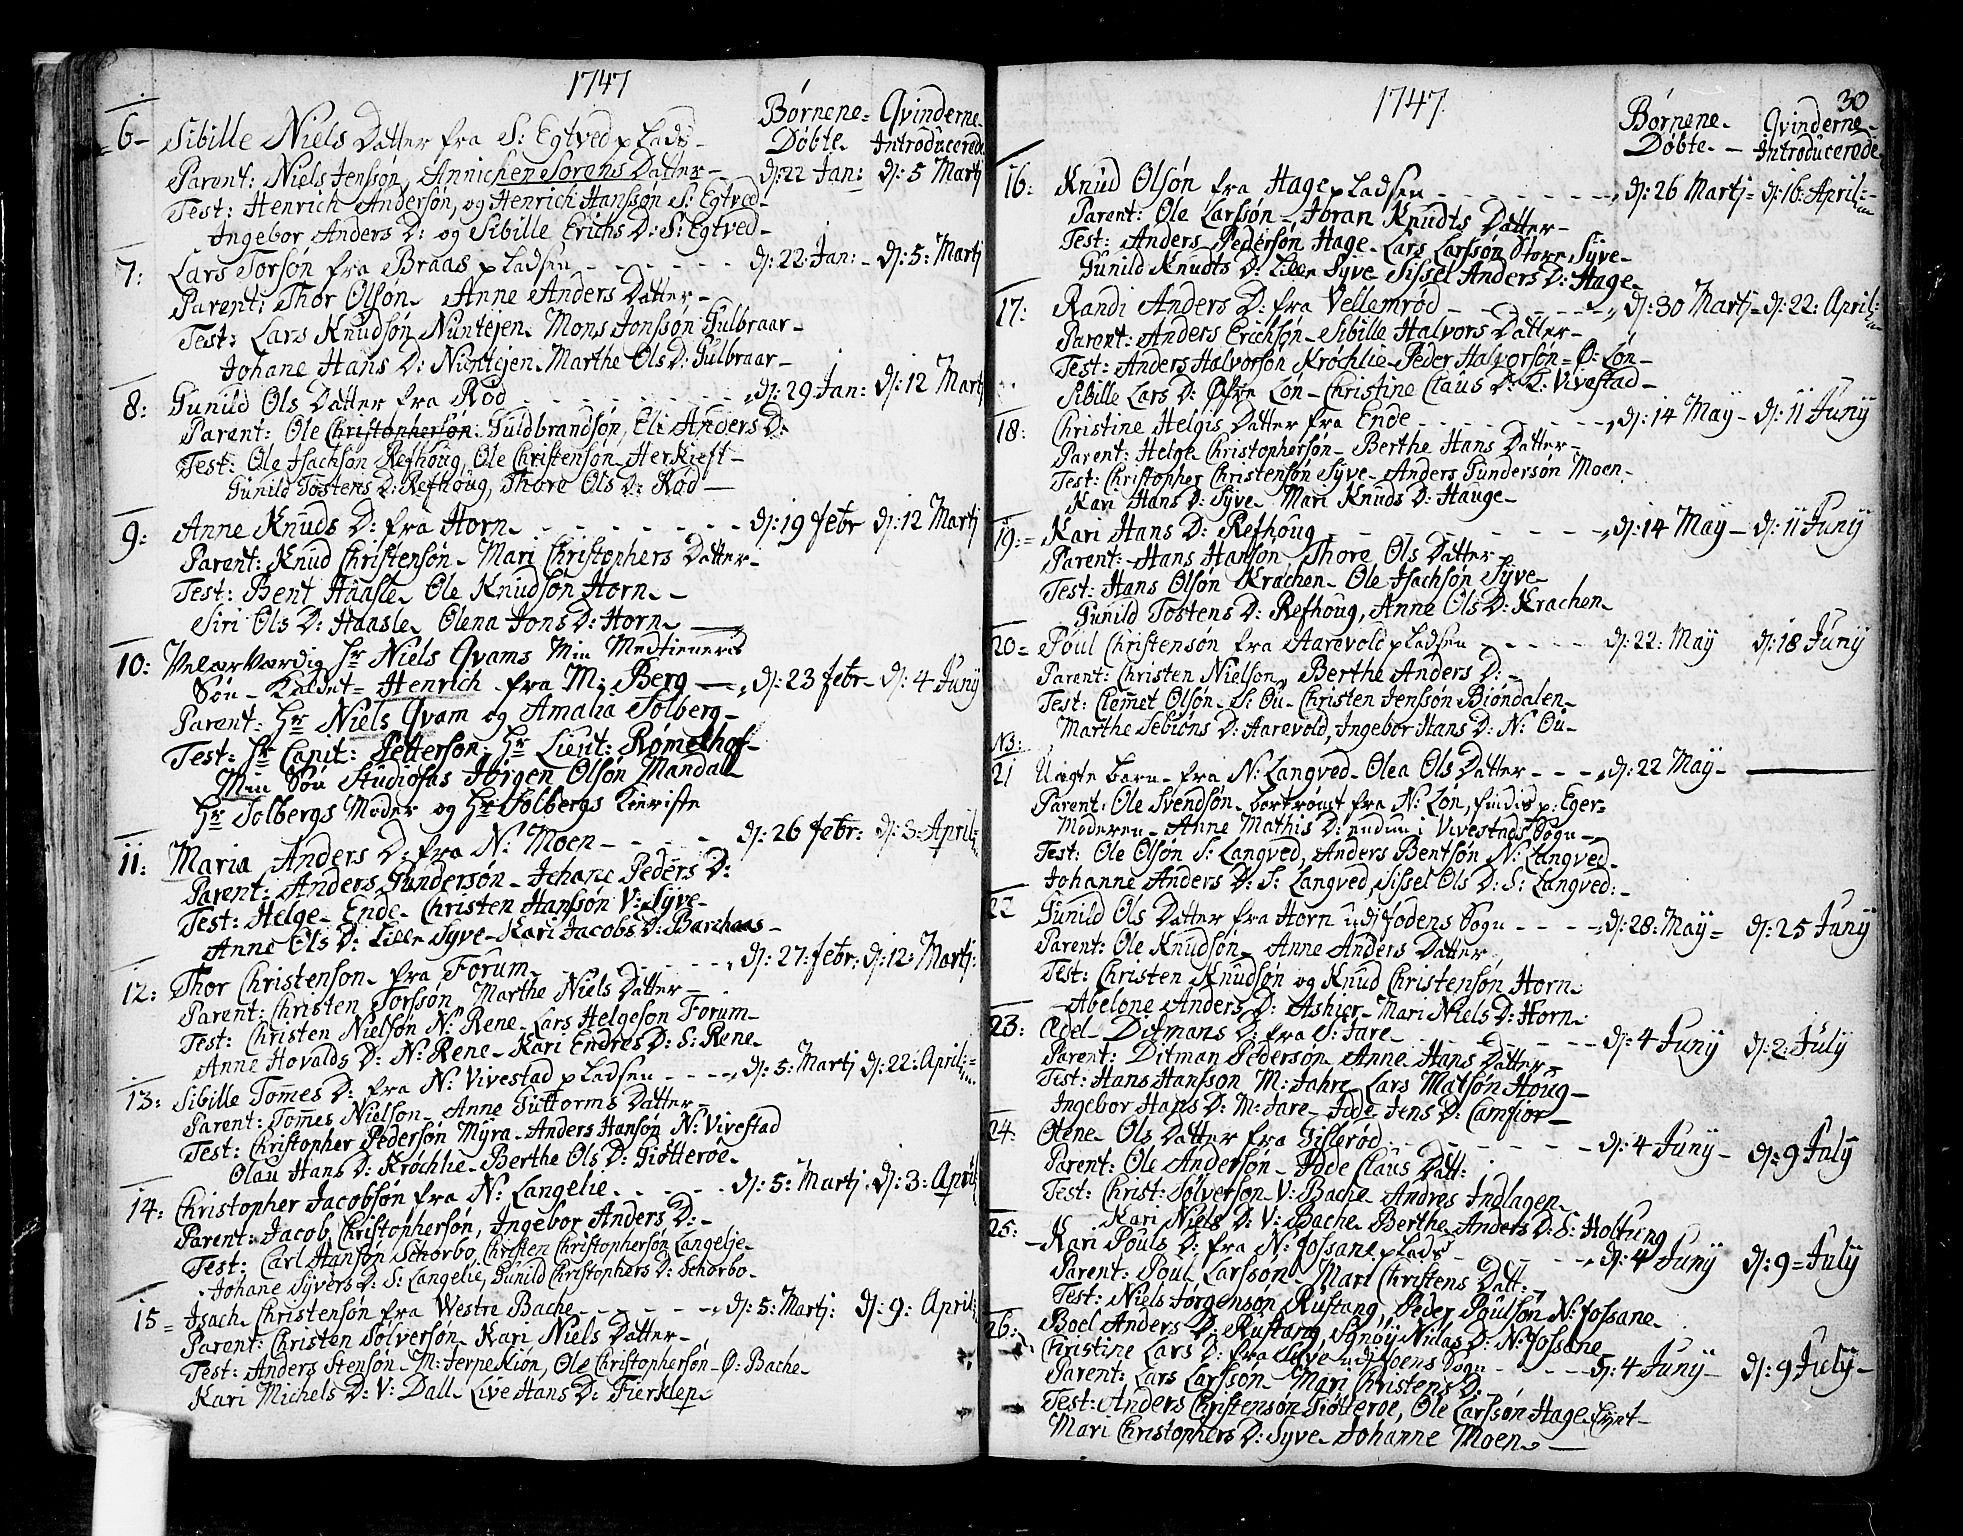 1747
Børnene Døbte. Qvinderne Introducerede
6 – Sibille Niels Datter fra S: Egtved plads –
Parent: Niels Jenssøn, Annichen Sørens Datter – d: 22 Jan: d: 5 Martj
Test: Henrich Andersøn, og Henrich Hanssøn S: Egtved –
Ingebor Anders D: og Sibille Erichs D: S: Egtved –
7: Lars Torsøn fra Braas pladsen – – – d: 22: Jan: – d: 5: Martj
Parent: Thor Olsøn – Anne Anders Datter –
Test: Lars Knudsøn Nuntejen – Mons Jonssøn Gulbraar –
Johane Hans D: Nuntejen – Marthe Ols D: Gulbraar –
8: Gunild Ols Datter fra Rød – – – d: 29 Jan: d: 12 Martj
Parent: Ole Christophersøn Guldbrandsøn, Eli Anders D:
Test: Ole Isachsøn Refhoug, Ole Christensøn Herkieft –
Gunild Tostens D: Refhoug, Thore Ols D: Rød –
9: Anne Knuds D: fra Horn – – – d: 19 febr d: 12 Martj
Parent: Knud Christensøn – Mari Christophers Datter –
Test: Bent Haasle – Ole Knudsøn Horn –
Siri Ols D: Haasle – Olena Jons D: Horn –
10: VelærVærdig Hr Niels Qvams Min Medtieneris
Søn – Kaldet = Henrich – fra M: Berg – d: 23 febr – d: 4 Juny
Parent: Hr Niels Qvam og Amalia Solberg –
Test: Hr Capit: Pettersøn. Hr Lieut: Rømelhof –
Min Søn Studiosus Jørgen Olsøn Mandall
Hr Solbergs Moder og Hr Solbergs Kieriste
11: Maria Anders D: fra N: Moen – – – d: 26 febr: d: 3: April:
Parent: Anders Gundersøn – Johane Peders D:
Test: Helge Ende – Christen Hanssøn V: Syve –
Anne Ols D: Lille Syve – Kari Jacobs D: Barchaas –
12: Thor Christensøn – fra Forum – – – d: 27: febr: d: 12: Martj:
Parent: Christen Torssøn, Marthe Niels Datter –
Test: Christen Nielsøn N: Rene – Lars Helgesøn Forum –
Anne Hovalds D: N: Rene – Kari Endres D: S: Rene –
13: Sibille Tomes D: fra N: Vivestad pladsen – – – d: 5: Martj d: 22: April:
Parent: Tomes Nielsøn – Anne Guttorms Datter –
Test: Christopher Pedersøn Myra – Anders Hansøn N: Vivestad
Olau Hans D: Krøchlie – Berthe Ols D: Giøtterøe –
14: Christopher Jacobsøn fra N: Langelie – – – d: 5: Martj d: 3: April
Parent: Jacob Christophersøn, Ingebor Anders D: –
Test: Carl Hansøn Schorbo, Christen Christophersøn Langelje –
Johane Syvers D: S: Langelie, Gunild Christophers D: Schorbo –
15 = Isach Christensøn fra Westre Bache – – – d: 5: Martj: d: 9: April:
Parent: Christen Sølversøn – Kari Niels Datter –
Test: Anders Stensøn – M: Jernekiøn, Ole Christophersøn – Ø: Bache –
Kari Michels D: V: Dall – Live Hans D: Fierklep –
30
1747.
Børnene Døbte – Qvinderne Introducerede
16: Knud Olsøn fra Hage pladsen – – – d: 26 Martj = d: 16: April:
Parent: Ole Larssøn – Joran Knudts Datter –
Test: Anders Pedersøn Hage – Lars Larssøn Store Syve –
Gunild Knudts D: Lille Syve – Sissel Anders D: Hage –
17: Randi Anders D: fra Vellemrød – – – d: 30 Martj – d: 22: April:
Parent: Anders Erichsøn – Sibille Halvors Datter –
Test: Anders Halvorsøn Krøchlie – Peder Halvorsøn = Ø: Løn –
Sibille Lars D: Øfre Løn – Christine Claus D: Vivestad –
18: Christine Helgis Datter fra Ende – – – d: 14 May – d: 11 Juny
Parent: Helge Christophersøn – Berthe Hans Datter –
Test: Christopher Christensøn Syve – Anders Gundersøn Moen –
Kari Hans D: Syve – Mari Knuds D: Hauge –
19: = Kari Hans D: Refhoug – – – d: 14 May – d: 11 Juny
Parent: Hans Hansøn – Thore Ols Datter
Test: Hans Olsøn Krachen – Ole Isachsøn Syve –
Gunild Tostens D: Refhoug, Anne Ols D: Krachen –
20 = Poul Christensøn fra Aarevold pladsen – – – d: 22: May d: 18 Juny
Parent: Christen Nielsøn, Berthe Anders D: –
Test: Clemet Olsøn – S: Ou – Christen Jenssøn Biøndalen –
Marthe Sebions D: Aarevold, Ingebor Hans D: N: Ou –
N3:
21 Uægte barn – fra N: Langved – Olea Ols Datter – – – d: 22 May –
Parent: Ole Svendsøn – bortrømt fra N: Løn, findis p: Eger –
Moderen – Anne Mathis D: endnu i Vivestads Sogn –
Test: Ole Olsøn S: Langved, Anders Bentsøn N: Langved –
Johanne Anders D: S: Langved, Sissel Ols D: S: Langved: –
22 Gunild Ols Datter fra Horn udj Fodens Sogn – – – d: 28: May = d: 25 Juny
Parent: Ole Knudsøn – Anne Anders Datter
Test: Christen Knudsøn og Knud Christensøn Horn –
Abelone Anders D: Ashier – Mari Niels D: Horn –
23: Ædel – Ditmans D: fra S: Jare – – – d: 4 Juny d: 2: July
Parent: Ditman Pedersøn – Anne Hans Datter –
Test: Hans Hansson M: Jahre – Lars Matsøn Houg –
Ingebor Hans D: M: Jare – Jøde Jens D: Camfior –
24: Olene – Ols Datter fra Gislerød – – – d: 4 Juny – d: 9 July
Parent: Ole Andersøn – Jøde Claus Datt:
Test: Christ: Sølversøn – V: Bache – Andres Indlagen –
Kari Niels D: V: Bache – Berthe Anders D: S: Holtung
25: – Kari Pouls D: fra N: Fossane plads – – – d: 4 Juny d: 9 = July
Parent: Poul Larssøn – Mari Christens Datt:
Test: Niels Jørgensøn Rustang, Peder Poulsøn N: Fossane –
Boel Anders D: Rustang, Sønøy Nidas D: N: Fossane
26: Christine Lars D: fra Syve udj Foens Sogn – – – d: 4 Juny – d: 9 July –
Parent: Lars Larssøn – Mari Christens D: –
Test: Anders Christensøn Giøtterøe, Ole Larssøn Hage –
Mari Christophers D: Syve – Johanne Moen –